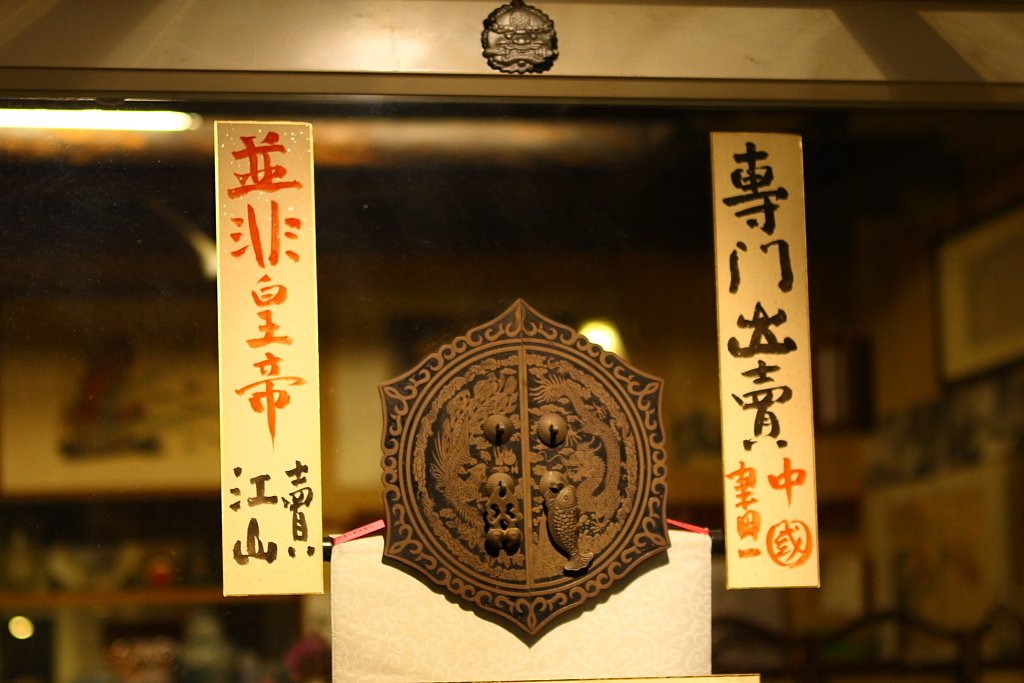 專门出賣中國畫
並非皇帝賣江山